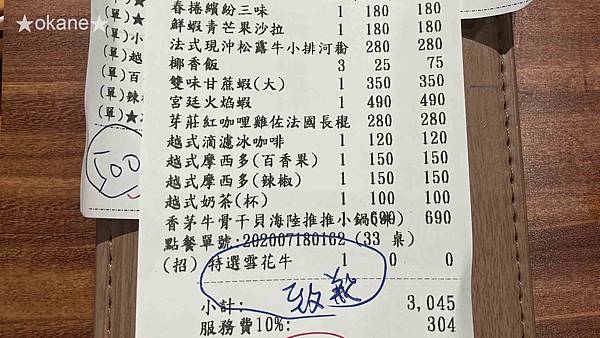 ★okane★
春捲繽紛三味 1 180 180
鮮蝦青芒果沙拉 1 180 180
法式現沖松露牛小排河粉 280 280
椰香飯 3 25 75
雙味甘蔗蝦(大) 1 350 350
宮廷火焰蝦 1 490 490
芽莊紅咖哩雞佐法國長棍 280 280
越式滴濾冰咖啡 1 120 120
越式摩西多(百香果) 1 150 150
越式摩西多(辣椒) 1 150 150
越式奶茶(杯) 1 100 100
香茅牛骨干貝海陸推推小鍋 690 690
點餐單號:202007180162 (33 桌)
(招) 特選雪花牛 1 0 0
致歉
小計: 3,045
服務費10%: 304
(單)★
(單)
(單)小
(單)越
(單)百
(單)辣
(單)★
100